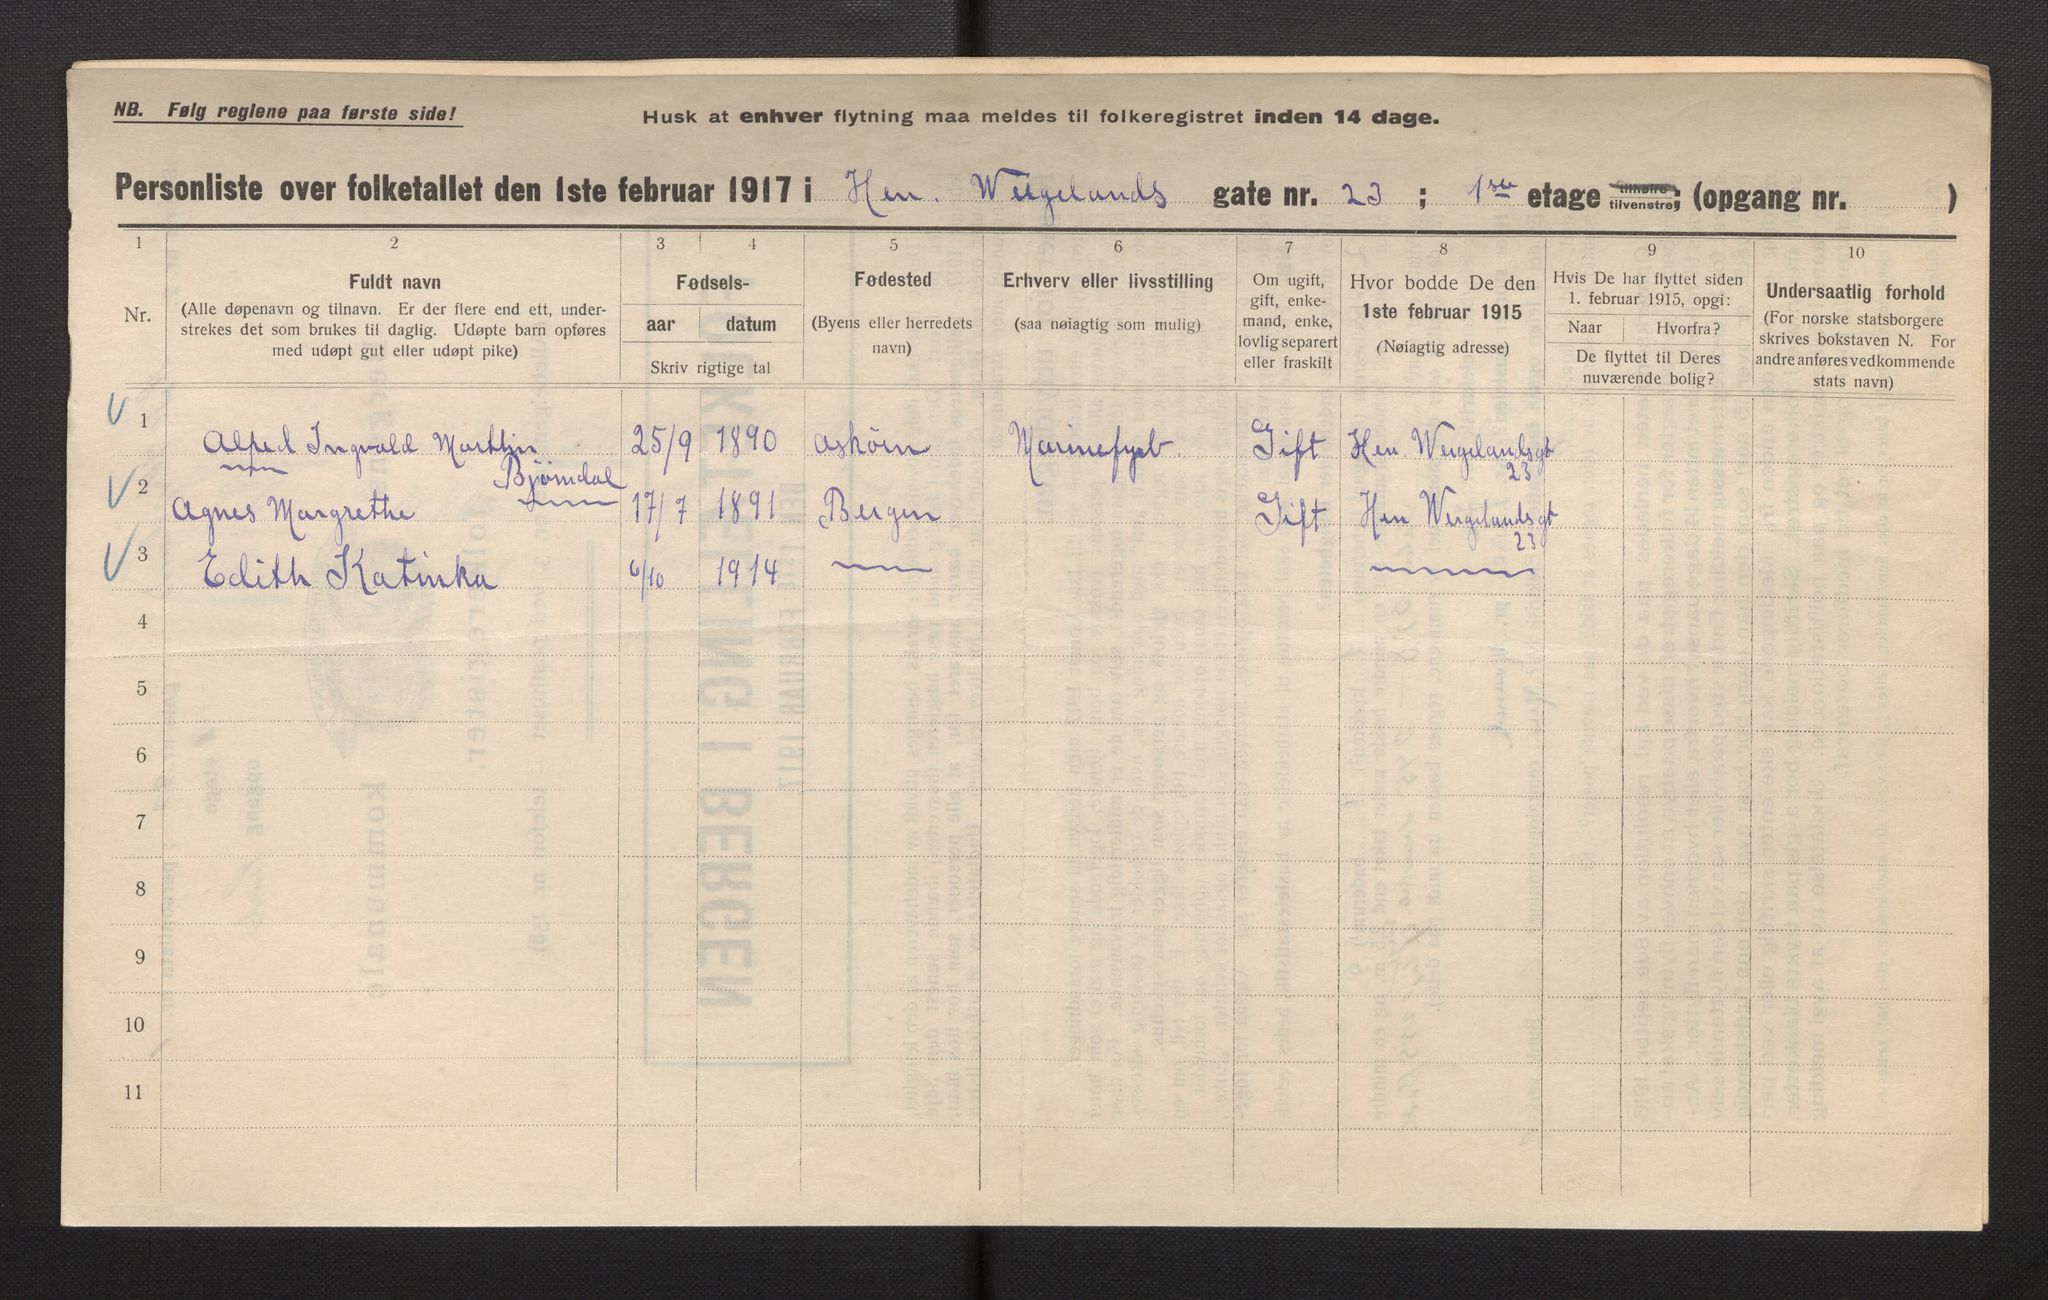 NB. Følg reglene paa første side!
Husk at enhver flytning maa meldes til folkeregistret inden 14 dage.
Personliste over folketallet den 1ste februar 1917 i Hen. Weigelands gate nr. 23 ; 1ste etage tilhøire tilvenstre; (opgang nr. )
1 2 3 4 5 6 7 8 9 10
Nr.
Fuldt navn
(Alle døpenavn og tilnavn. Er der flere end ett, under-
strekes det som brukes til daglig. Udøpte barn opføres
med udøpt gut eller udøpt pike)
Fødsels-
aar datum
Skriv rigtige tal
Fødested
(Byens eller herredets
navn)
Erhverv eller livsstilling
(saa nøiagtig som mulig)
Om ugift,
gift, enke-
mand, enke,
lovlig separert
eller fraskilt
Hvor bodde De den
1ste februar 1915
(Nøiagtig adresse)
Hvis De har flyttet siden
1. februar 1915, opgi:
Naar Hvorfra?
De flyttet til Deres
nuværende bolig?
Undersaatlig forhold
(For norske statsborgere
skrives bokstaven N. For
andre anføres vedkommende
stats navn)
1 Alfred Ingvald Martin 25/9 1890 Askøen Gift Hen. Weigelandsgt
Bjørndal 23
2 Agnes Margrethe 17/7 1891 Bergen Gift Hen Weigelandsgt
23
3 Edith Katinka 6/10 1914
4
5
6
7
8
9
10
11